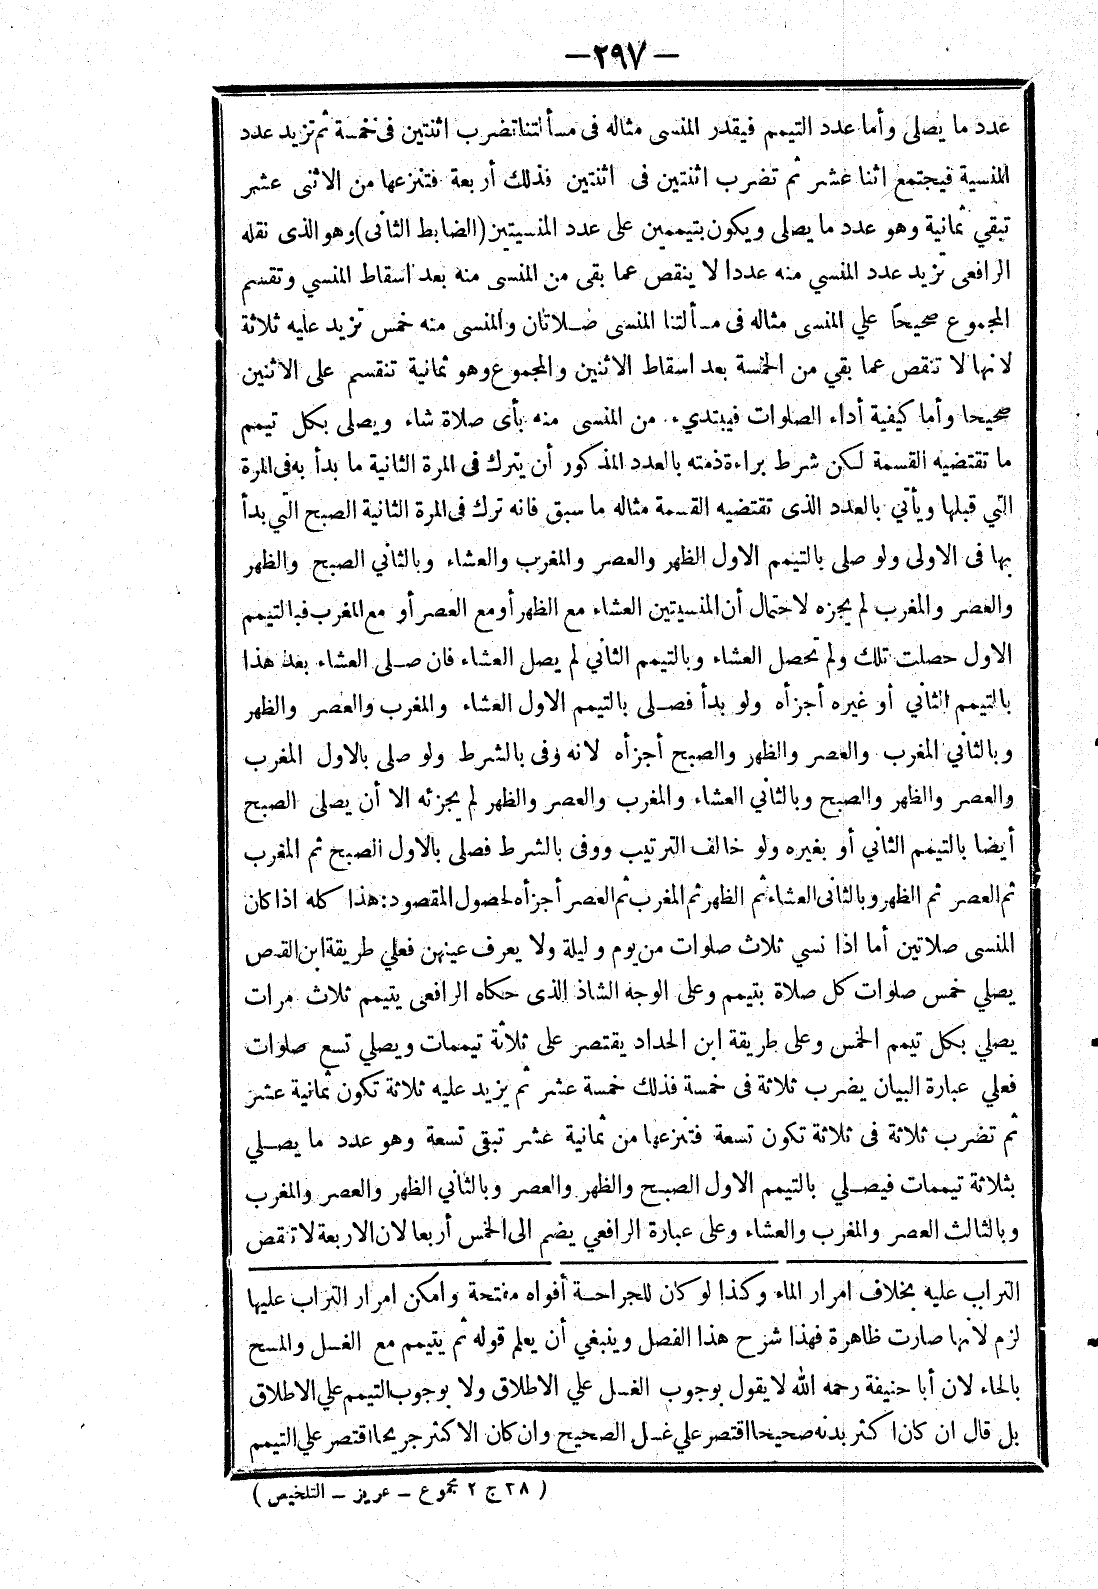 —٢٩٧—
عدد ما يصلى وأما عدد التيمم فيقدر المنسى مثاله فى مسألتنا تضرب اثنتين فى خمسة ثم تزيد عدد
المنسية فيجتمع اثنا عشر ثم تضرب اثنتين فى اثنتين فذلك أربعة فتنزعها من الاثنى عشر
تبقي ثمانية وهو عدد ما يصلى ويكون بتيممين على عدد المنسيتين (الضابط الثانى) وهو الذى نقله
الرافعى تزيد عدد المنسي منه عددا لا ينقص عما بقى من المنسى منه بعد اسقاط المنسي وتقسم
المجموع صحيحاً علي المنسى مثاله فى مسألتنا المنسى صلاتان والمنسى منه خمس تزيد عليه ثلاثة
لانها لا تنقص عما بقي من الخمسة بعد اسقاط الاثنين والمجموع وهو ثمانية تنقسم على الاثنين
صحيحا وأما كيفية أداء الصلوات فيبتديء من المنسى منه بأى صلاة شاء ويصلى بكل تيمم
ما تقتضيه القسمة لكن شرط براءة ذمته بالعدد المذكور أن يترك فى المرة الثانية ما بدأ به فى المرة
التي قبلها ويأتي بالعدد الذى تقتضيه القسمة مثاله ما سبق فانه ترك فى المرة الثانية الصبح التي بدأ
بها فى الاولى ولو صلى بالتيمم الاول الظهر والعصر والمغرب والعشاء وبالثاني الصبح والظهر
والعصر والمغرب لم يجزه لاحتمال أن المنسيتين العشاء مع الظهر أو مع العصر أو مع المغرب فبالتيمم
الاول حصلت تلك ولم تحصل العشاء وبالتيمم الثاني لم يصل العشاء فان صلى العشاء بعد هذا
بالتيمم الثاني أو غيره أجزأه ولو بدأ فصلى بالتيمم الاول العشاء والمغرب والعصر والظهر
وبالثاني المغرب والعصر والظهر والصبح أجزأه لانه وفى بالشرط ولو صلى بالاول المغرب
والعصر والظهر والصبح وبالثاني العشاء والمغرب والعصر والظهر لم يجزئه الا أن يصلى الصبح
أيضا بالتيمم الثاني أو بغيره ولو خالف الترتيب ووفى بالشرط فصلى بالاول الصبح ثم المغرب
ثم العصر ثم الظهر وبالثانى العشاء ثم الظهر ثم المغرب ثم العصر أجزأه لحصول المقصود: هذا كله اذا كان
المنسى صلاتين أما اذا نسي ثلاث صلوات من يوم وليلة ولا يعرف عينهن فعلي طريقة ابن القاص
يصلي خمس صلوات كل صلاة بتيمم وعلى الوجه الشاذ الذى حكاه الرافعى يتيمم ثلاث مرات
يصلي بكل تيمم الخمس وعلى طريقة ابن الحداد يقتصر على ثلاثة تيممات ويصلي تسع صلوات
فعلي عبارة البيان يضرب ثلاثة فى خمسة فذلك خمسة عشر ثم يزيد عليه ثلاثة تكون ثمانية عشر
ثم تضرب ثلاثة فى ثلاثة تكون تسعة فتنزعها من ثمانية عشر تبقى تسعة وهو عدد ما يصلي
بثلاثة تيممات فيصلي بالتيمم الاول الصبح والظهر والعصر وبالثاني الظهر والعصر والمغرب
وبالثالث العصر والمغرب والعشاء وعلى عبارة الرافعي يضم الى الخمس أربعا لان الاربعة لا تنقص
التراب عليه بخلاف امرار الماء وكذا لو كان للجراحة أفواه مفتحة وامكن امرار التراب عليها
لزم لانها صارت ظاهرة فهذا شرح هذا الفصل وينبغي أن يعلم قوله ثم يتيمم مع الغسل والمسح
بالحاء لان أبا حنيفة رحمه الله لا يقول بوجوب الغسل علي الاطلاق ولا بوجوب التيمم علي الاطلاق
بل قال ان كان اكثر بدنه صحيحا اقتصر علي غسل الصحيح وان كان الاكثر جريحا اقتصر علي التيمم
( ٣٨ ج ٢ مجموع – عزيز – التلخيص )